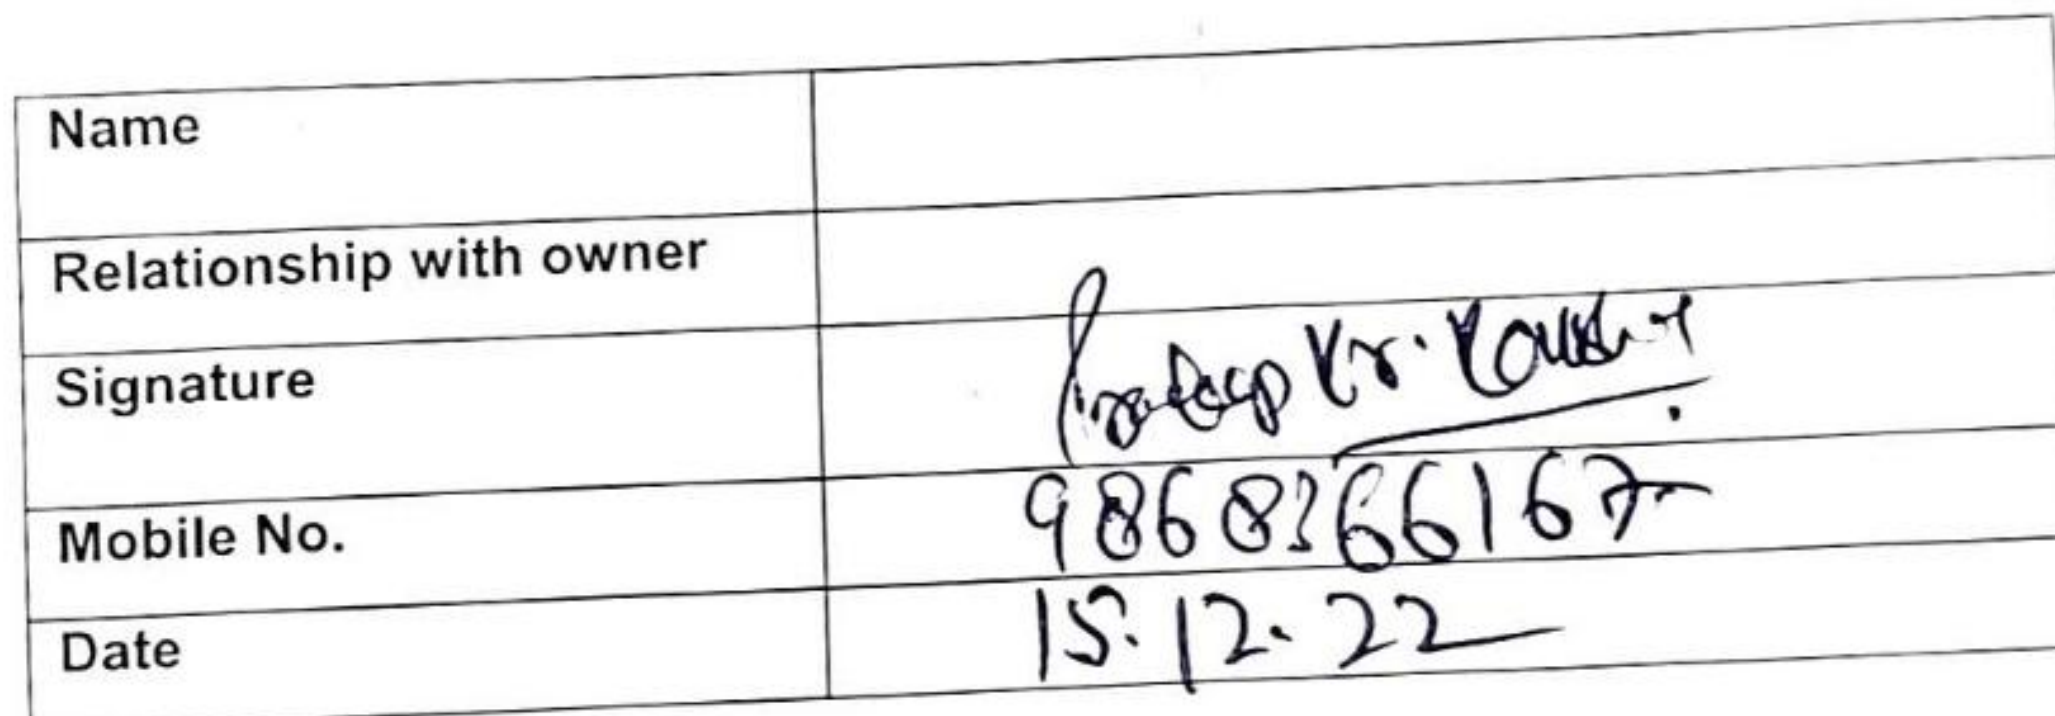 Name
Relationship with owner
Signature Pradeep Kr. Kaushik
Mobile No. 9868366167
Date 15.12.22